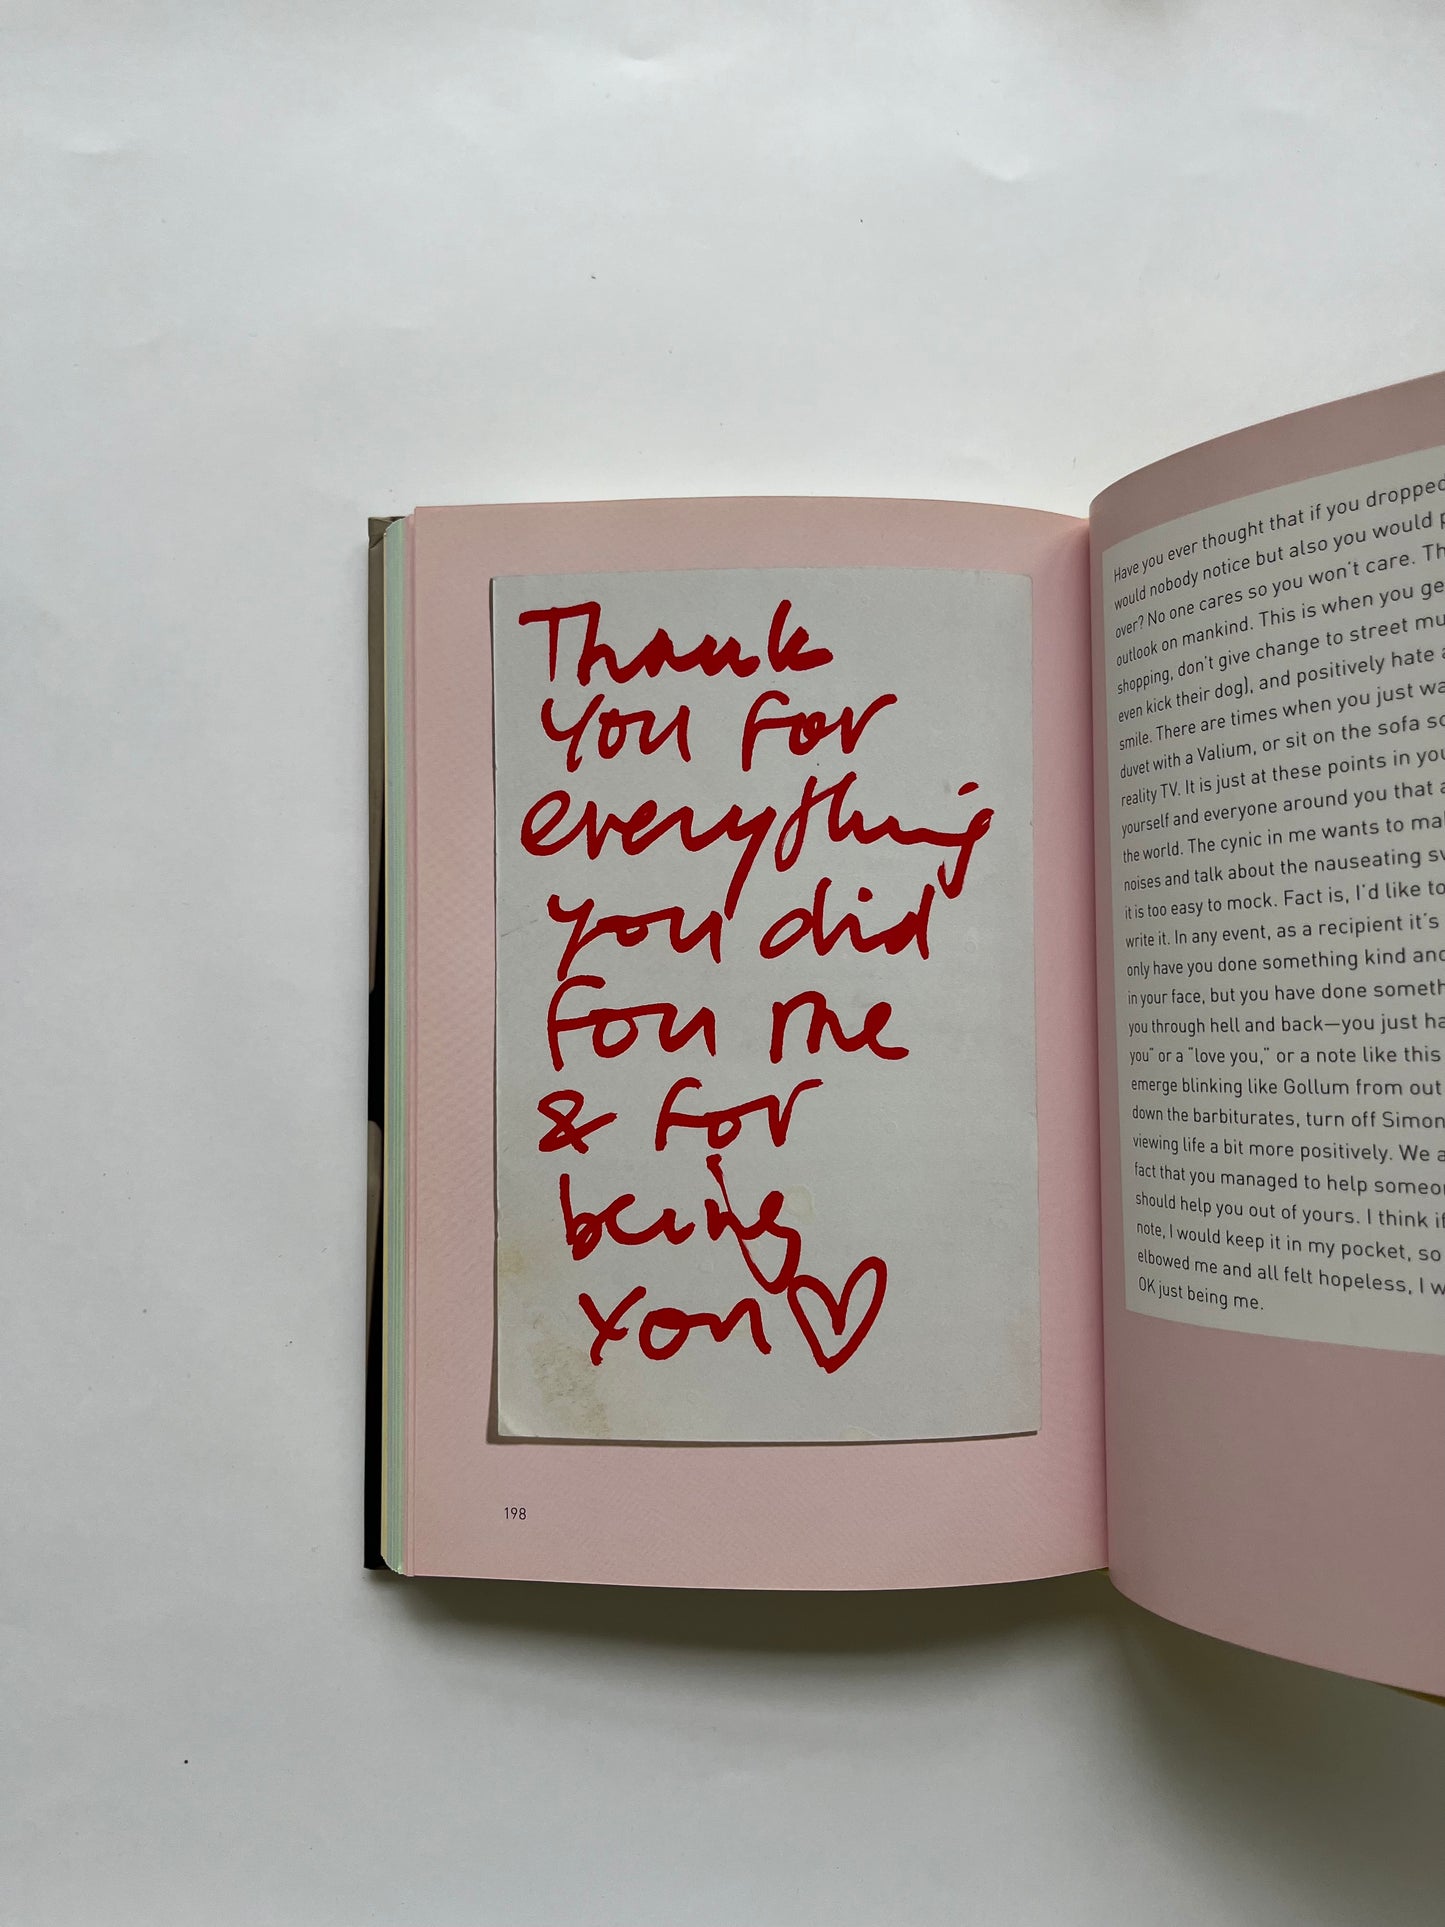 Thank
you for
everything
you did
for me
& for
being
you
198
Have you ever thought that if you dropped
would nobody notice but also you would
over? No one cares so you won't care. Th
outlook on mankind. This is when you ge
shopping, don't give change to street mu
even kick their dog), and positively hate a
smile. There are times when you just wa
duvet with a Valium, or sit on the sofa so
reality TV. It is just at these points in you
yourself and everyone around you that a
the world. The cynic in me wants to ma
noises and talk about the nauseating sw
it is too easy to mock. Fact is, I'd like to
write it. In any event, as a recipient it's
only have you done something kind and
in your face, but you have done someth
you through hell and back—you just ha
you" or a "love you," or a note like this
emerge blinking like Gollum from out
down the barbiturates, turn off Simon
viewing life a bit more positively. We a
fact that you managed to help someo
should help you out of yours. I think if
note, I would keep it in my pocket, so
elbowed me and all felt hopeless, I w
OK just being me.